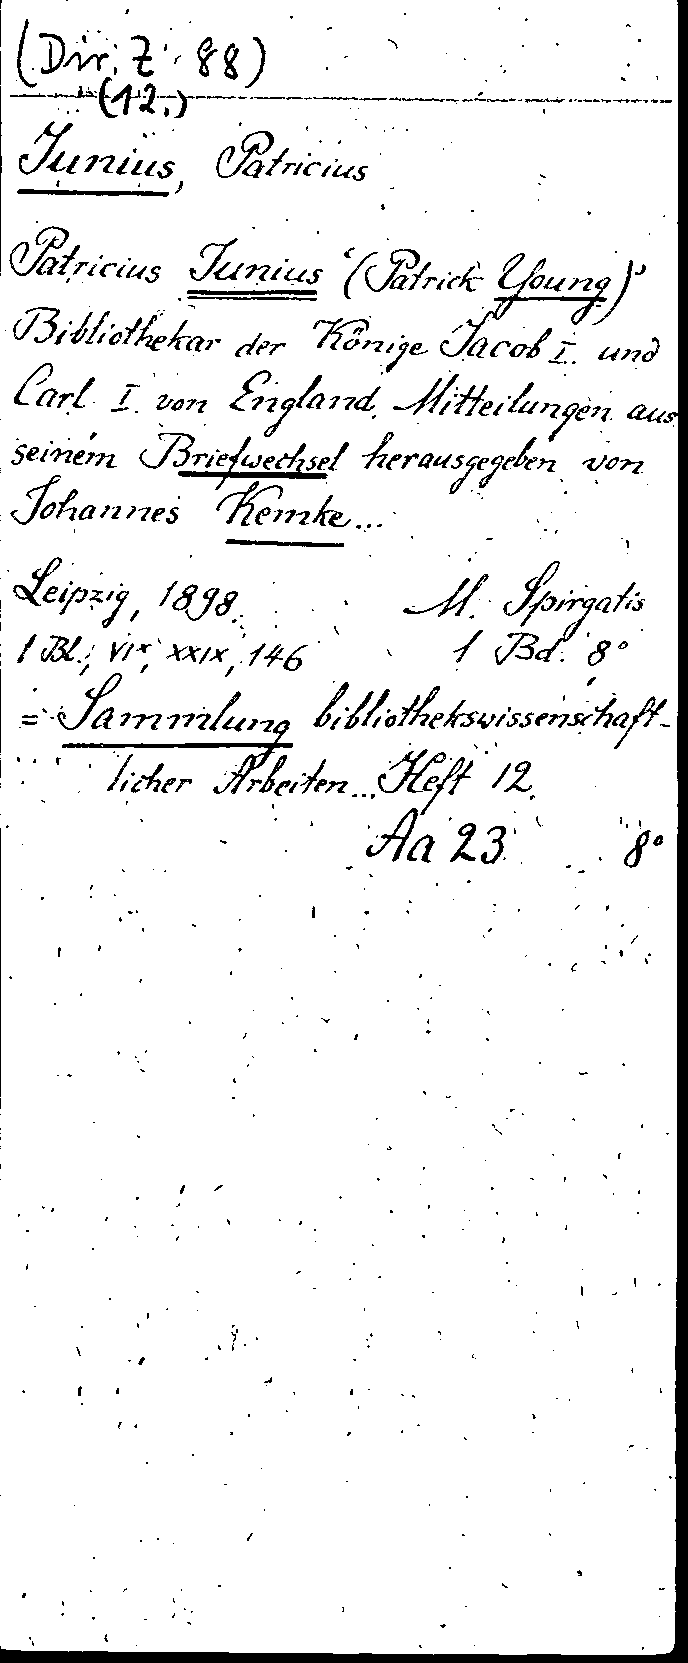 (Dir. Z. 88)
(12.)
Junius, Patricius
Patricius Junius (Patrick Young)
Bibliothekar der Könige Jacob I. und
Carl I. von England. Mitteilungen aus
seinem Briefwechsel herausgegeben von
Johannes Kemke...
Leipzig, 1898. M. Spirgatis
1 Bl., VIx, XXIX, 146 1 Bd. 8°
= Sammlung bibliothekswissenschaft-
licher Arbeiten... Heft 12.
Aa 23 8°